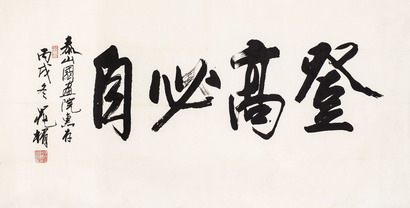 登高必自
泰山國畫院惠存
丙戌冬